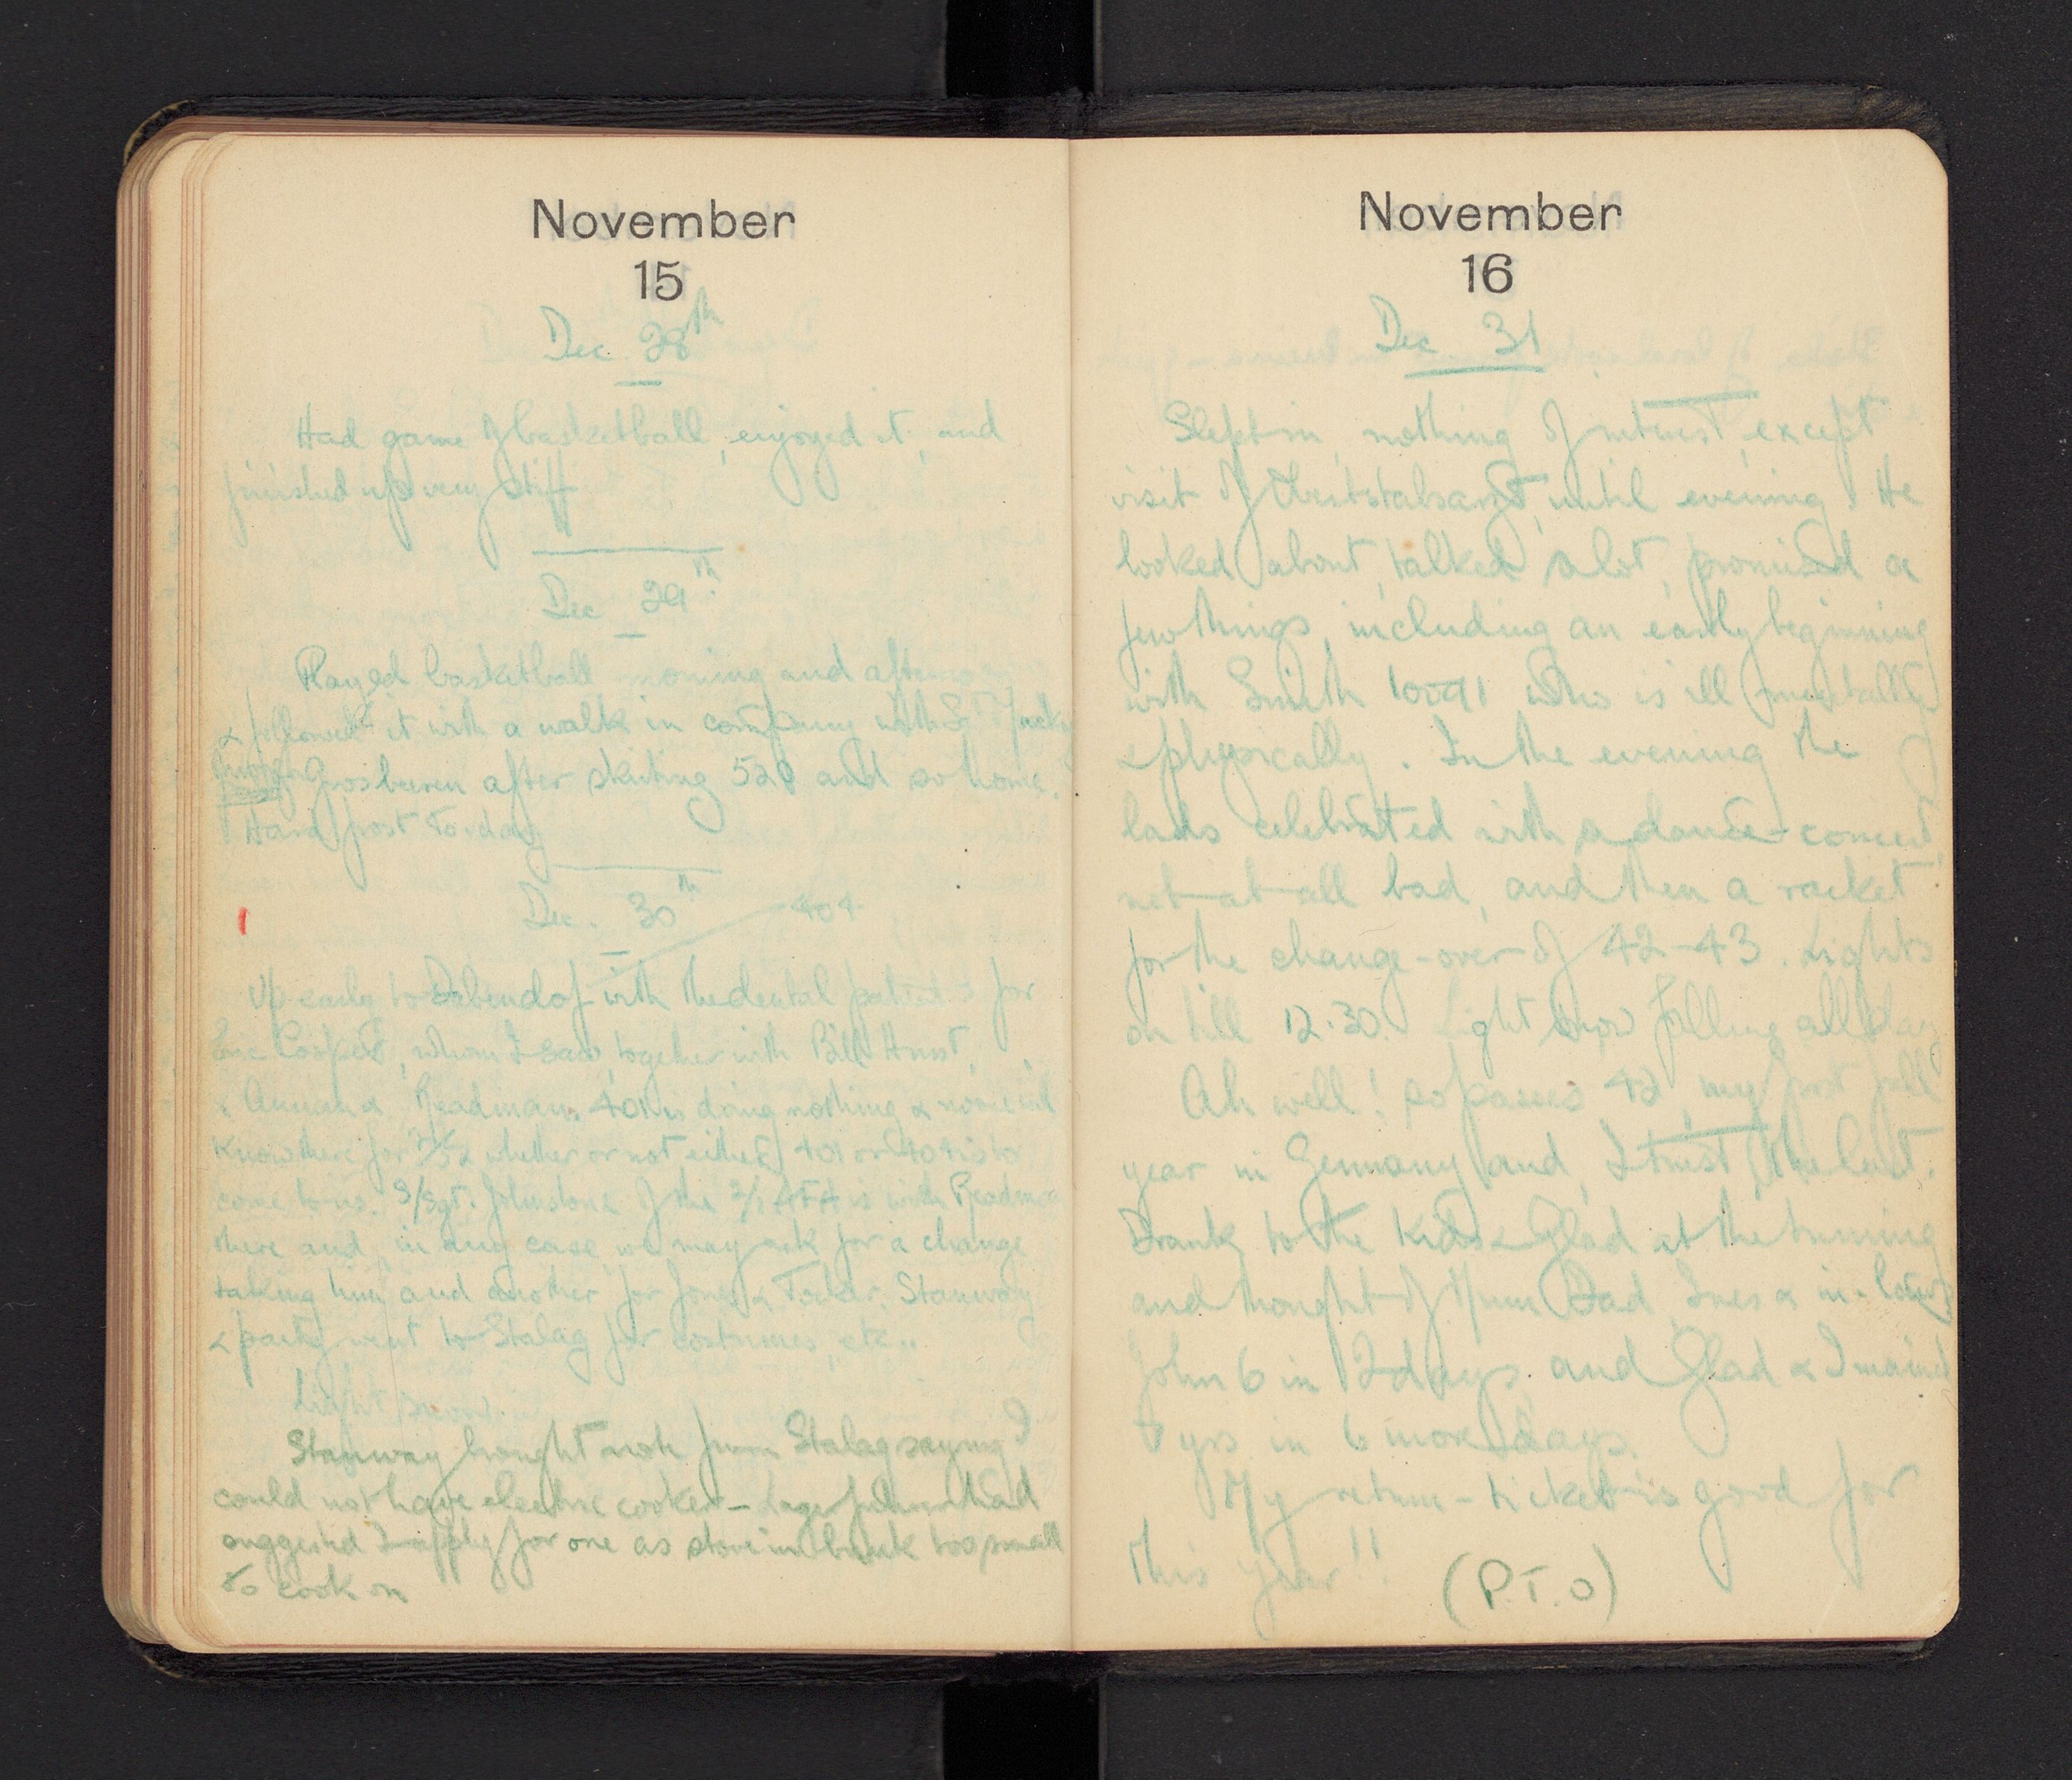 November
15
Dec 28th
Had game of basketball, enjoyed it, and
finished up very stiff
Dec 29th
Played basketball morning and
& followed it with a walk in company with
Grosbeeren after skirting 520 and so home.
Hard frost to-day
Dec. 30th 404
Up early to Dabendof with the dental patients for
Cooper, whom I saw together with Bill Hurst,
& Readman. 401 is doing nothing & no one will
know there for whether or not either 401 or 404 is to
come to us. S/Sgt. Johnstone of the is with
there and, in any case, we may ask for a change
taking him and another for Jones & Stanway
& party went to Stalag for costumes, etc..
Light snow.
Stanway brought note from Stalag saying I
could not have electric cooker – had
suggested I apply for one as stove in too small
to cook on
November
16
Dec 31
Slept in, nothing of interest except
visit of until evening. He
looked about, talked a lot, promised a
few things, including an early beginning
with Smith 10091 who is ill mentally
& physically. In the evening the
lads celebrated with a dance-concert,
not-at-all bad, and then a racket
for the change-over of 42–43. Lights
on till 12.30. Light snow falling all day
Ah well! so passes 42, my first full
year in Germany and, I trust, the last.
Drank to the kids & Glad at the turning
and thought of Mum Dad, & in-laws
John 6 in 2 days, and Glad & I married
yrs in 6 more days.
My return-ticket is good for
this year!!
(P.T.O)